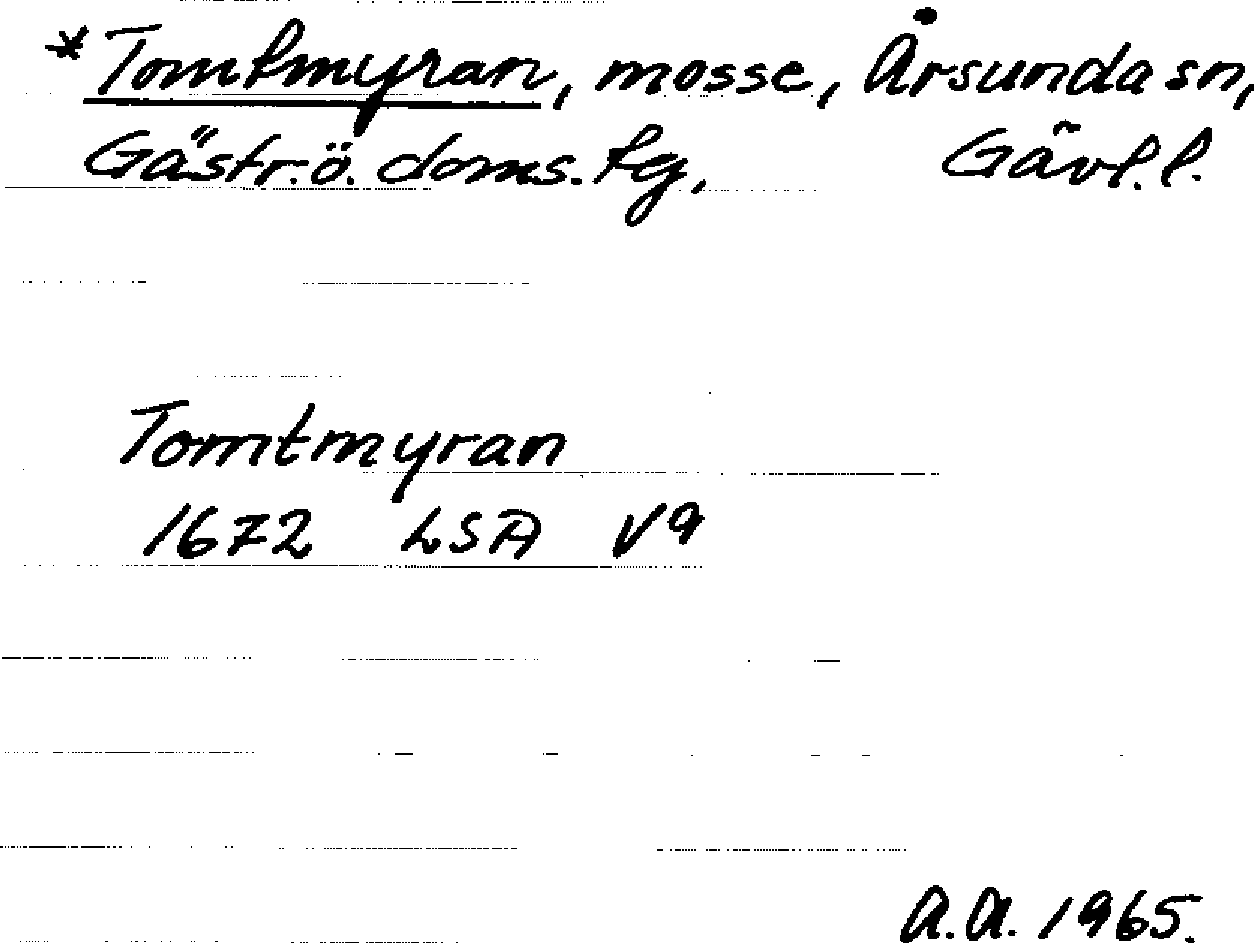 *Tomtmyran, mosse, Årsunda sn,
Gästr.ö. doms. tg, Gävl.l.
Tomtmyran
1672 LSA V9
A.A. 1965.